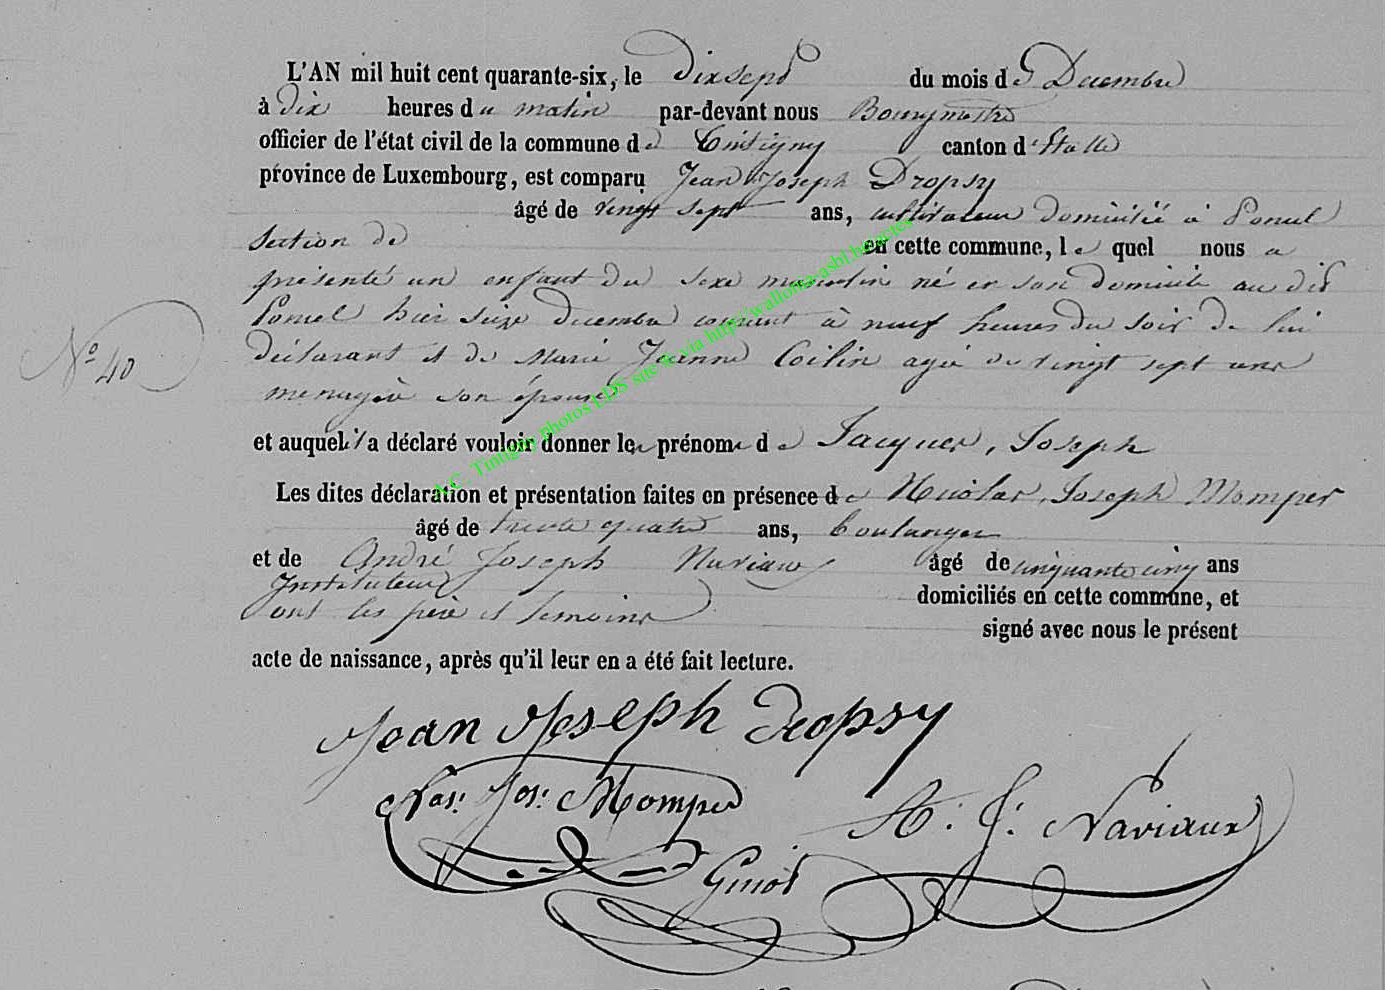 L'AN mil huit cent quarante-six, le Dixsept du mois de Decembre
à dix heures du matin par-devant nous Bourgmestre
officier de l'état civil de la commune de Tintigny canton d'Etalle
province de Luxembourg, est comparu Jean Joseph Dropsy
âgé de vingt sept ans, cultivateur domicilié à Poncel
section de en cette commune, le quel nous a
présenté un enfant du sexe masculin né en son domicile au dit
Poncel hier seize decembre courant à neuf heures du soir de lui
déclarant et de Marie Jeanne Collin agée de vingt sept ans
menagère son épouse
N° 40
et auquel il a déclaré vouloir donner les prénoms de Jacques, Joseph
Les dites déclaration et présentation faites en présence de Nicolas, Joseph Momper
âgé de trente quatre ans, boulanger
et de André Joseph Naviaux âgé de cinquante cinq ans
Instituteur domiciliés en cette commune, et
ont les père et témoins signé avec nous le présent
acte de naissance, après qu'il leur en a été fait lecture.
Jean Joseph Dropsy
Nas. Jos. Momper
A. J. Naviaux
Ginot
A.C. Tintigny photos LDS site & via http://wallonia-asbl.be/actes